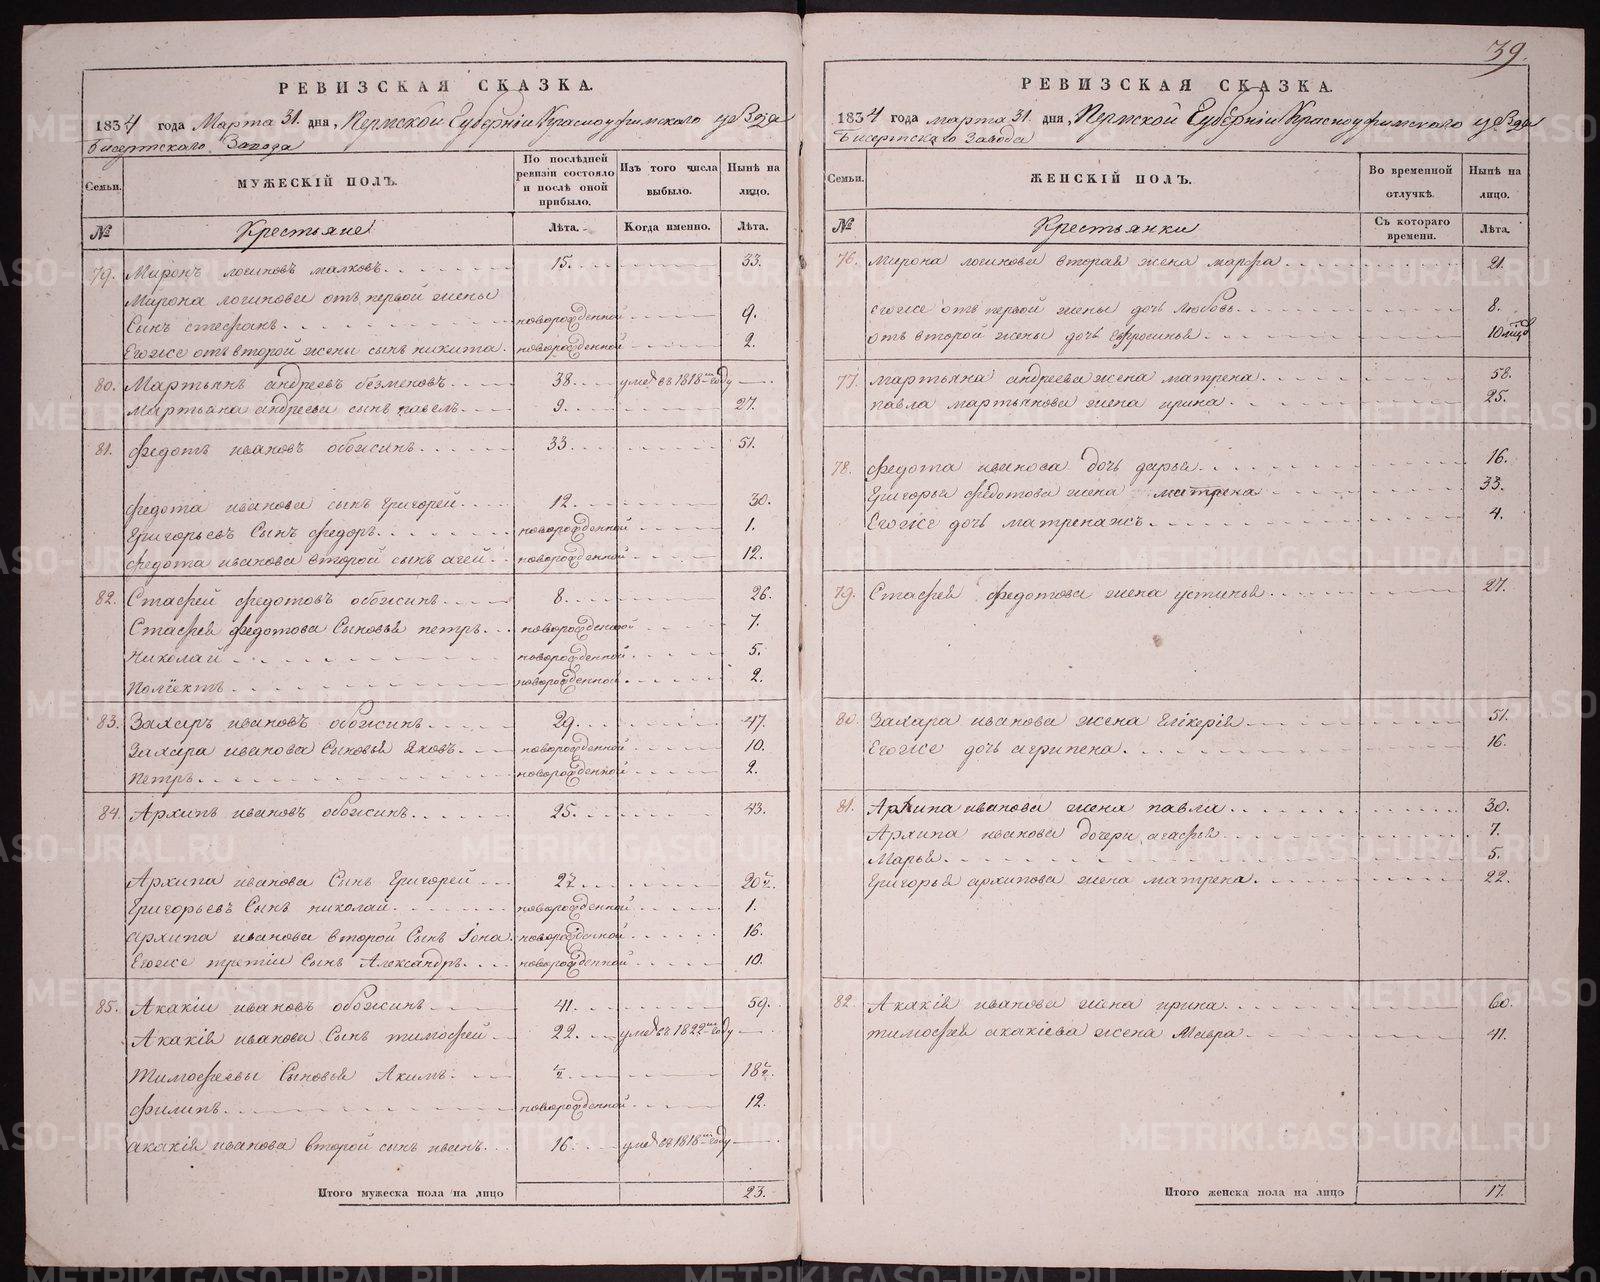 39.
РЕВИЗСКАЯ СКАЗКА.
1834 года Марта 31. дня, Пермской Губерніи Красноуфимскаго уѣзда
Бисертскаго Завода
Семьи.
МУЖЕСКІЙ ПОЛЪ.
По послѣдней ревизіи состояло и послѣ оной прибыло.
Изъ того числа выбыло.
Нынѣ на лицо.
№
Крестьяне
Лѣта.
Когда именно.
Лѣта.
79. Миронъ логиновъ малковъ 15. 33.
Мирона логинова отъ первой жены
Сынъ стефанъ новорожденной 9.
Егоже отъ второй жены сынъ никита новорожденной 2.
80. Мартьянъ андреевъ безменовъ 38. умеръ въ 1818 году
Мартьяна андреева сынъ павелъ 9. 27.
81. федотъ ивановъ обожинъ 33 51.
федота иванова сынъ Григорей 12. 30.
Григорьевъ Сынъ федоръ новорожденной 1.
федота иванова второй сынъ агей новорожденной 12.
82. Стафей федотовъ обожинъ 8. 26.
Стафея федотова Сыновья петръ новорожденной 7.
Николай новорожденной 5.
Полиектъ новорожденной 2.
83. Захаръ ивановъ обожинъ 29. 47.
Захара иванова Сыновья яковъ новорожденной 10.
петръ новорожденной 2.
84. Архипъ ивановъ обожинъ 25. 43.
Архипа иванова Сынъ Григорей
Григорьевъ Сынъ николай новорожденной 1.
архипа иванова второй Сынъ Іона новорожденной 16.
Егоже третіи Сынъ Александръ новорожденной 10.
85. Акакіи ивановъ обожинъ 41. 59.
Акакія иванова Сынъ тимофей 22. умеръ въ 1822 году
Тимофеевы Сыновья Акимъ ½ 18½.
филипъ новорожденной 12.
акакія иванова второй сынъ иванъ 16. умеръ въ 1818 году
Итого мужеска пола на лицо 23.
РЕВИЗСКАЯ СКАЗКА.
1834 года марта 31. дня, Пермской Губерніи Красноуфимскаго уѣзда
Бисертскаго Завода
Семьи.
ЖЕНСКІЙ ПОЛЪ.
Во временной отлучкѣ.
Нынѣ на лицо.
№
Крестьянки
Съ котораго времени.
Лѣта.
76. Мирона логинова вторая жена марфа 21.
Егоже отъ первой жены дочь Любовь 8.
отъ второй жены дочь Ефросинья 10
77. мартьяна андреева жена матрена 58.
павла мартьянова жена ирина 25.
78. федота иванова дочь дарья 16.
Григорья федотова жена матрена 33.
Егоже дочь матренажъ 4.
79. Стафея федотова жена устинья 27.
80. Захара иванова жена Гликерія 51.
Егоже дочь агрипена 16.
81. Архипа иванова жена павла 30.
Архипа иванова дочери агафья 7.
Марья 5.
Григорья архипова жена матрена 22.
82. Акакія иванова жена ирина 60.
тимофея акакіева жена Мавра 41.
Итого женска пола на лицо 17.
METRIKI.GASO-URAL.RU